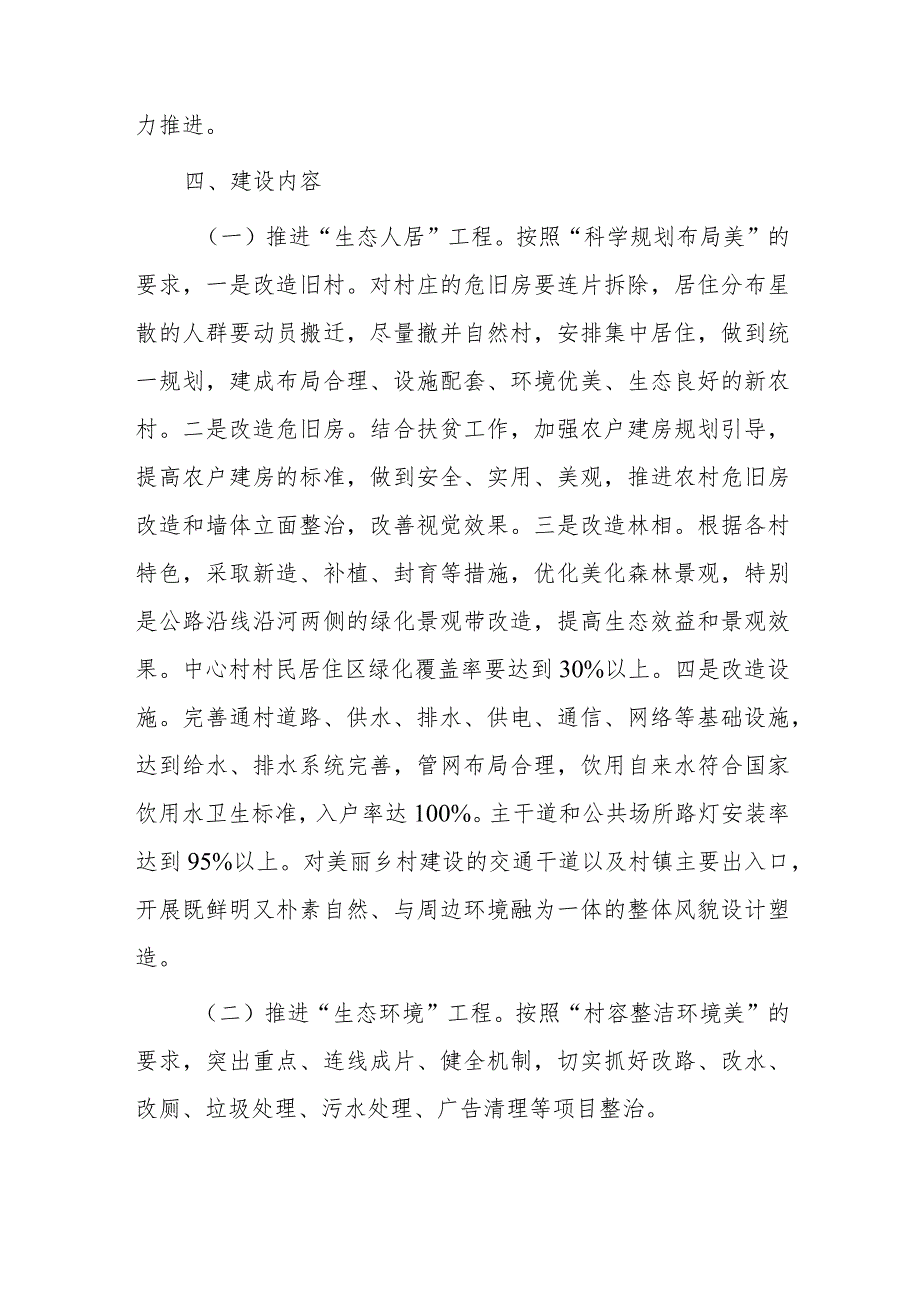 力推进。
四、建设内容
（一）推进“生态人居”工程。按照“科学规划布局美”的
要求，一是改造旧村。对村庄的危旧房要连片拆除，居住分布星
散的人群要动员搬迁，尽量撤并自然村，安排集中居住，做到统
一规划，建成布局合理、设施配套、环境优美、生态良好的新农
村。二是改造危旧房。结合扶贫工作，加强农户建房规划引导，
提高农户建房的标准，做到安全、实用、美观，推进农村危旧房
改造和墙体立面整治，改善视觉效果。三是改造林相。根据各村
特色，采取新造、补植、封育等措施，优化美化森林景观，特别
是公路沿线沿河两侧的绿化景观带改造，提高生态效益和景观效
果。中心村村民居住区绿化覆盖率要达到30%以上。四是改造设
施。完善通村道路、供水、排水、供电、通信、网络等基础设施，
达到给水、排水系统完善，管网布局合理，饮用自来水符合国家
饮用水卫生标准，入户率达100%。主干道和公共场所路灯安装率
达到95%以上。对美丽乡村建设的交通干道以及村镇主要出入口，
开展既鲜明又朴素自然、与周边环境融为一体的整体风貌设计塑
造。
（二）推进“生态环境”工程。按照“村容整洁环境美”的
要求，突出重点、连线成片、健全机制，切实抓好改路、改水、
改厕、垃圾处理、污水处理、广告清理等项目整治。